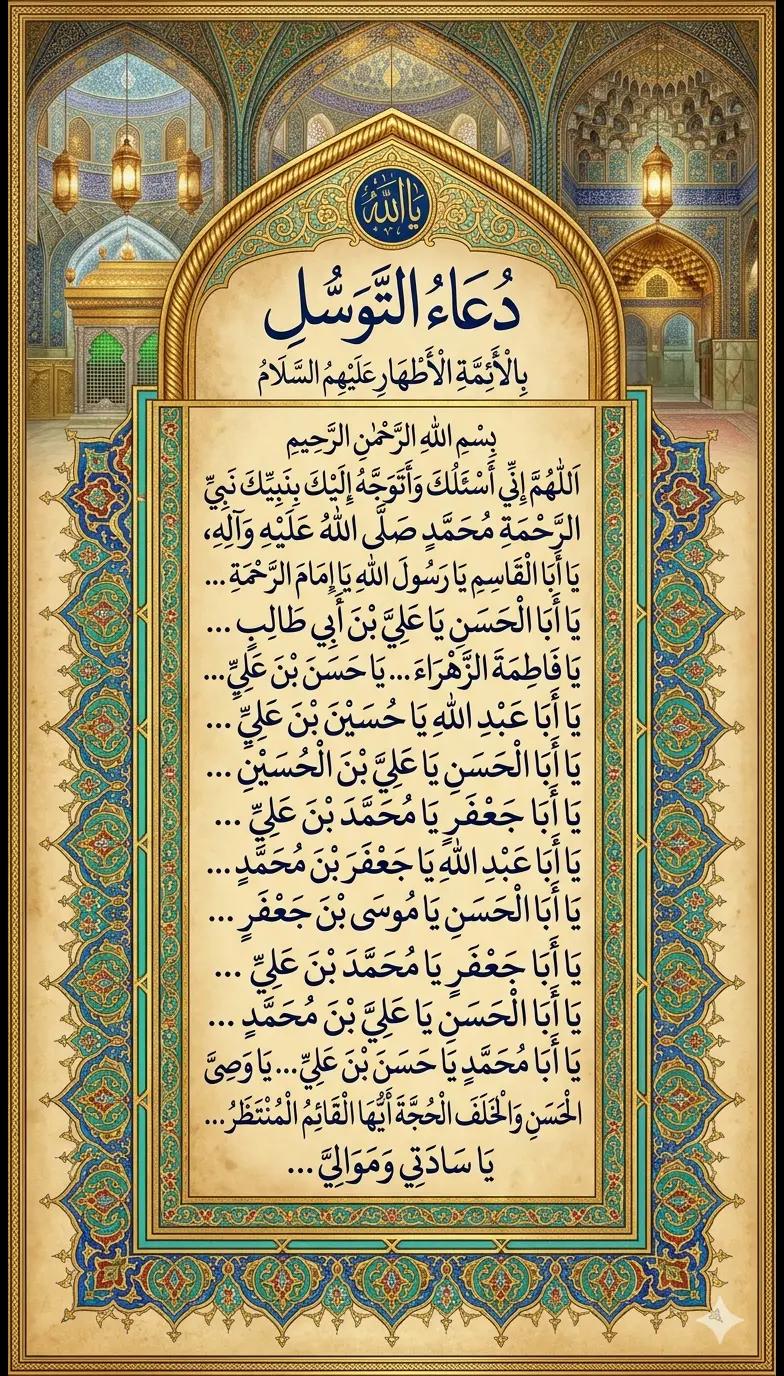 يَا اللّٰهُ
دُعَاءُ التَّوَسُّلِ
بِالْأَئِمَّةِ الْأَطْهَارِ عَلَيْهِمُ السَّلَامُ
بِسْمِ اللهِ الرَّحْمٰنِ الرَّحِيمِ
اَللّٰهُمَّ إِنِّي أَسْئَلُكَ وَأَتَوَجَّهُ إِلَيْكَ بِنَبِيِّكَ نَبِيِّ
الرَّحْمَةِ مُحَمَّدٍ صَلَّى اللهُ عَلَيْهِ وَآلِهِ،
يَا أَبَا الْقَاسِمِ يَا رَسُولَ اللهِ يَا إِمَامَ الرَّحْمَةِ ...
يَا أَبَا الْحَسَنِ يَا عَلِيَّ بْنَ أَبِي طَالِبٍ ...
يَا فَاطِمَةَ الزَّهْرَاءَ ... يَا حَسَنَ بْنَ عَلِيٍّ ...
يَا أَبَا عَبْدِ اللهِ يَا حُسَيْنَ بْنَ عَلِيٍّ ...
يَا أَبَا الْحَسَنِ يَا عَلِيَّ بْنَ الْحُسَيْنِ ...
يَا أَبَا جَعْفَرٍ يَا مُحَمَّدَ بْنَ عَلِيٍّ ...
يَا أَبَا عَبْدِ اللهِ يَا جَعْفَرَ بْنَ مُحَمَّدٍ ...
يَا أَبَا الْحَسَنِ يَا مُوسَى بْنَ جَعْفَرٍ ...
يَا أَبَا جَعْفَرٍ يَا مُحَمَّدَ بْنَ عَلِيٍّ ...
يَا أَبَا الْحَسَنِ يَا عَلِيَّ بْنَ مُحَمَّدٍ ...
يَا أَبَا مُحَمَّدٍ يَا حَسَنَ بْنَ عَلِيٍّ ... يَا وَصِىَّ
الْحَسَنِ وَالْخَلَفَ الْحُجَّةَ أَيُّهَا الْقَائِمُ الْمُنْتَظَرُ ...
يَا سَادَتِي وَمَوَالِيَّ ...